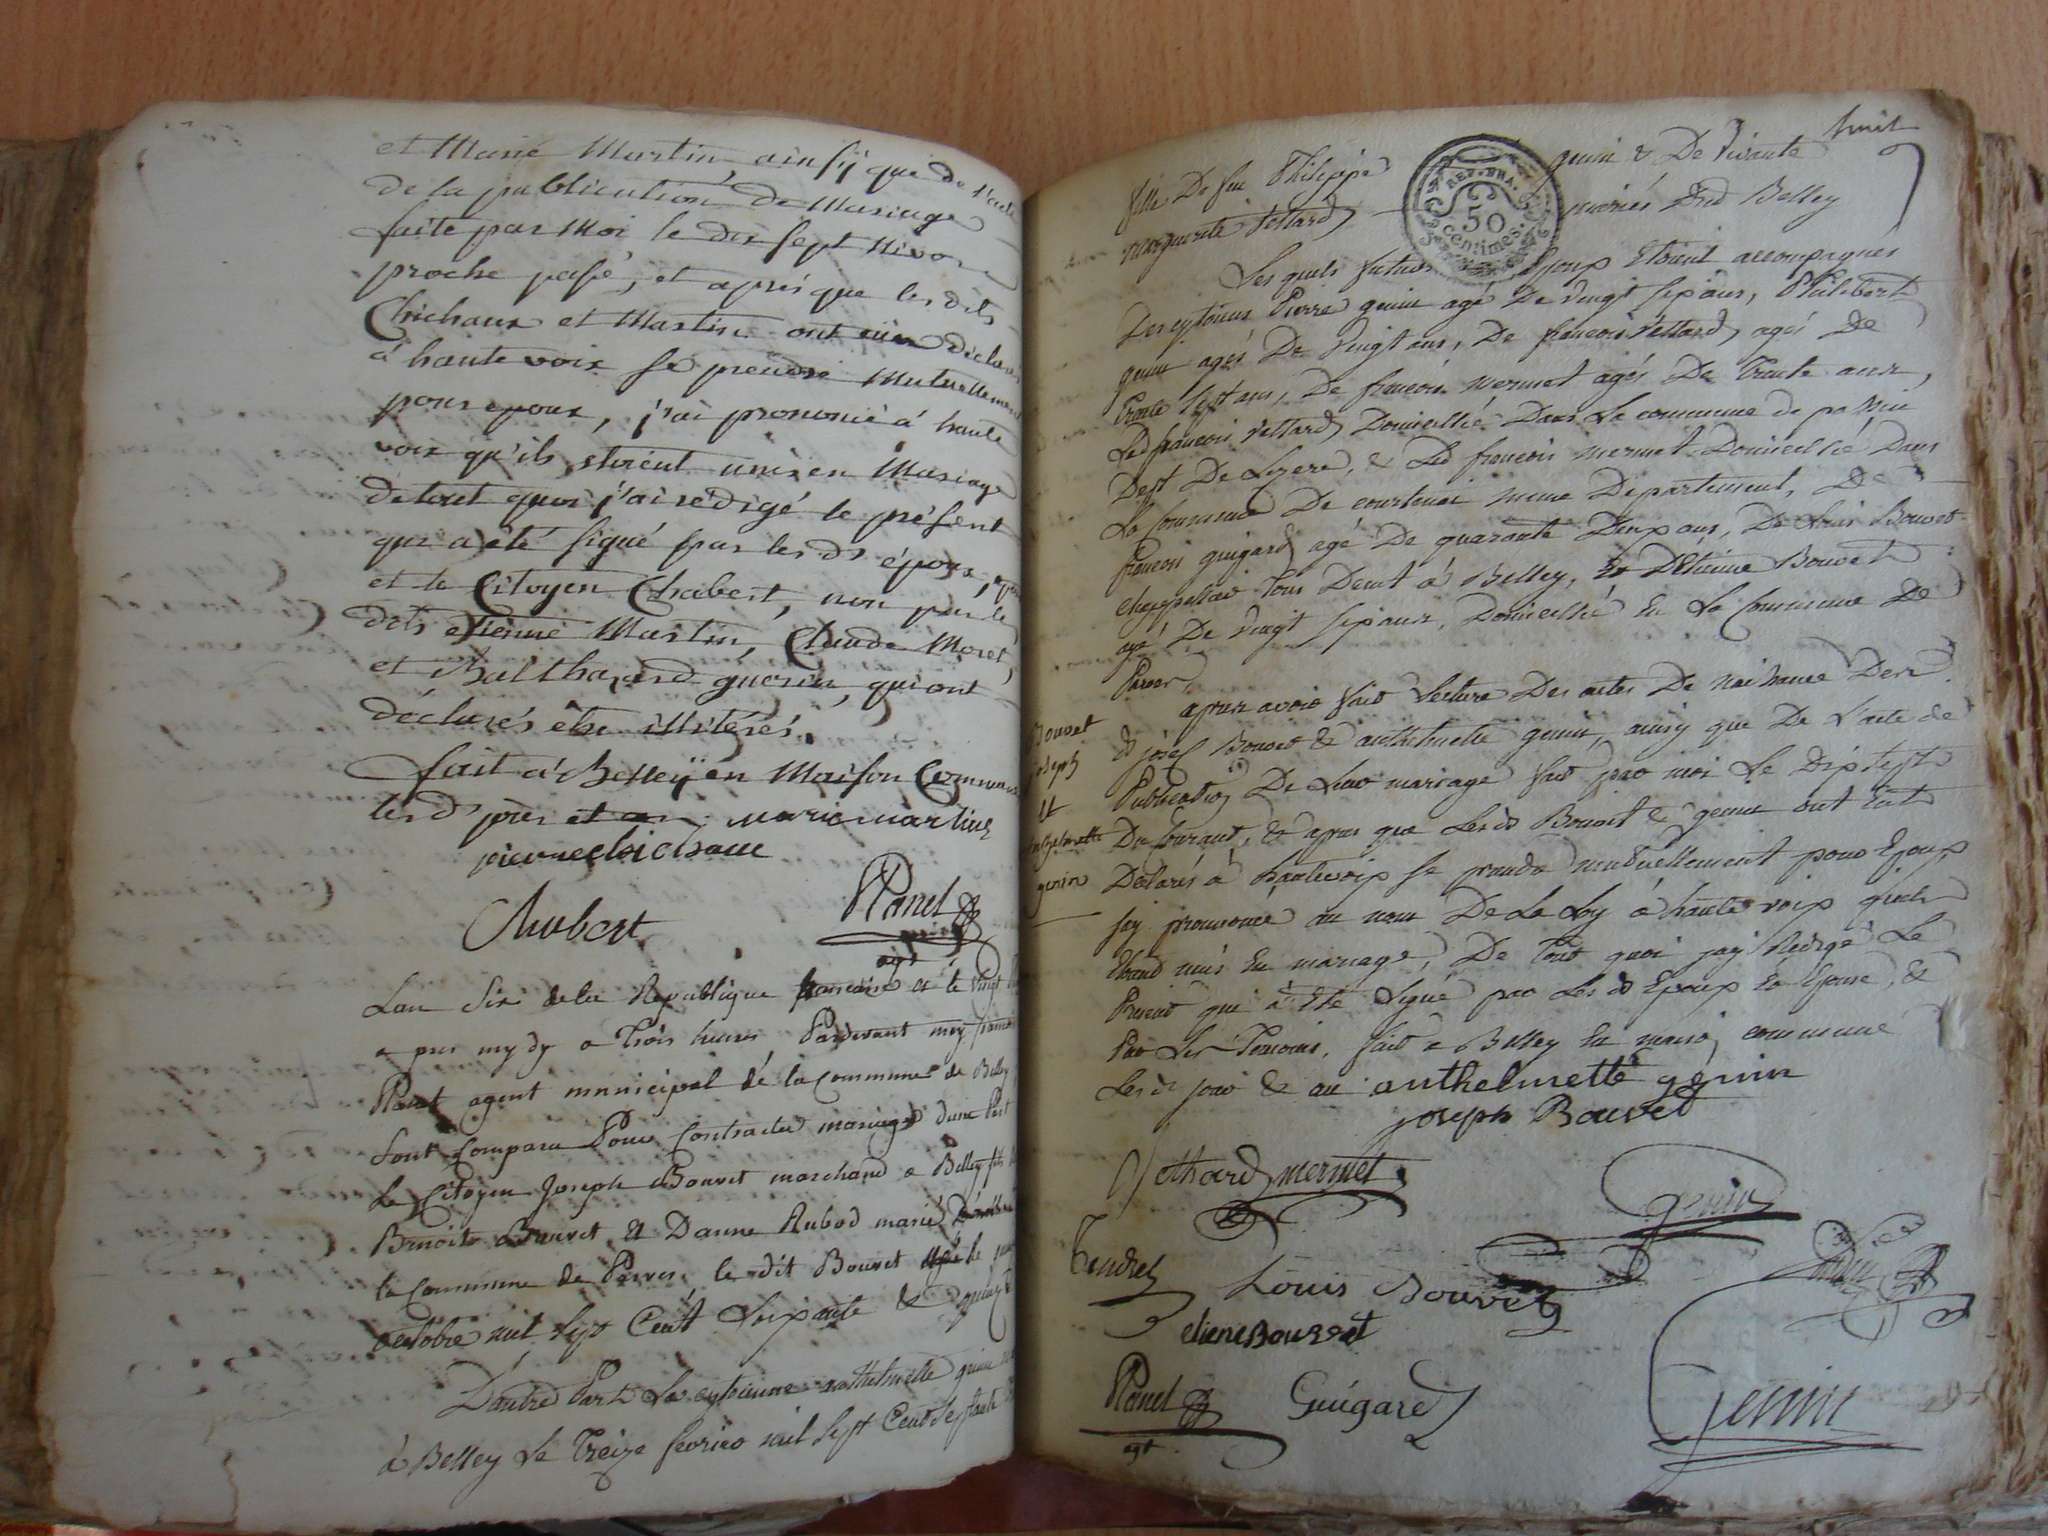 et Marie Martin, ainsÿ que de l'acte
de la publication de Mariage
faite par Moi le dix sept Nivose
proche passé, et après que les dits
Chichaux et Martin ont declaré
à haute voix se prendre Mutuellement
pour epoux, j'ai prononcé à haute
voix qu'ils etoient unis en Mariage
de tout quoi j'ai rédigé le présent
qui a eté signé par les ds époux,
et le Citoyen Chabert, non par le
dits etienne Martin, Claude Moret,
et Balthazard guerin, qui ont
déclarés etre illitérés.
fait à Belleÿ en Maison Commune
les d. jour et an. marie martin
pierre chichaux
Chabert Planet
agt
Lan Six de la Republique francaise et le vingt
apres mydy a trois heures Pardevant moy
Planet agent municipal de la Commune de Belley
Sont Comparu Pour Contracter mariage dune Part
Le Citoyen Joseph Bouvet marchand a Belley fils
Benoit Bouvet et Danne Rubod marié
la Commune de Parves le dit Bouvet
octobre mil sept Cent Soixante & quinze
Dautre Part La cytoienne anthelmette genin
à Belley Le Treize fevrier mil Sept Cent Septante
huit
fille De feu Philippe genin & De vivante
marguerite vettard mariés Belley
REP. FRA.
50
centimes
Les quels futurs Epoux Etoient accompagnés
Des cytoiens Pierre genin agé De vingt six ans, Philibert
genin agés De vingt ans, De francois vettard agés De
trente sept ans, De francois mermet agés De Trente ans,
Led francois vettard Domicillié Dans La commune de
Dept De Lizere, & Led francois mermet Domicillié Dans
La Commune De courtenai meme Departement, De
francois guigard agé De quarante Deux ans, De Louis Bouvet
chappellier tous Demt à Belley, et DEtienne Bouvet
agé De vingt six ans, Domicillié En La Commune De
Parves
Bouvet
joseph
et
anthelmette
genin
apres avoir fait lecture Des actes De naissance Des
d josef Bouvet & anthelmette genin, ainsy que De L'acte de
Publication De Leur mariage fait par moi Le dixsept
Du Courant, & apres que Lesd Bouvet & genin ont Eut
Declarés à hautevoix se prendre mutuellement pour Epoux
jay prononcé au nom De La Loy à haute voix quils
Etand unis En mariage, De Tout quoi jay Redigé Le
Present qui à Eté Signé par Les d Epoux Et Epouse, &
Par Les Temoins, fait a Belley En maison commune
Les d jour & an anthelmette génin
joseph Bouvet
mermet
genin
Louis Bouvet
etiene Bouvet
Planet Guigard Genin
agt